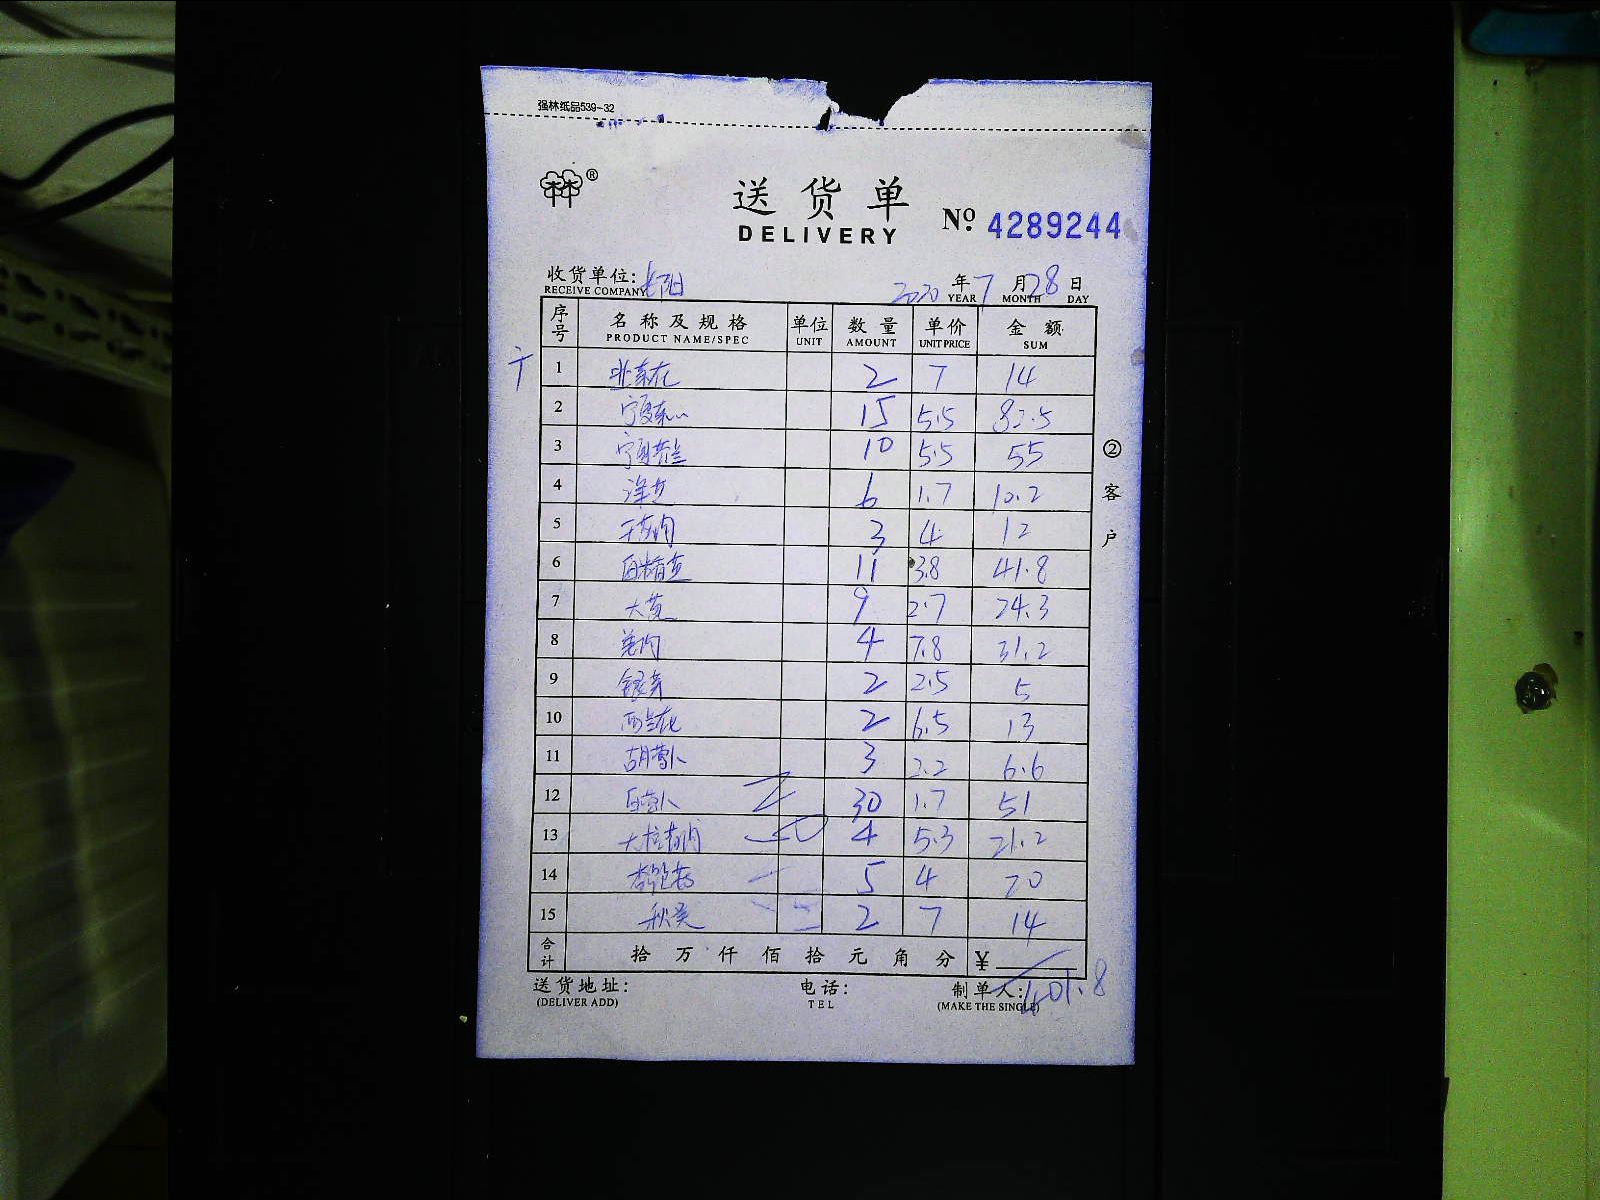 强林纸品539-32
林林®
送货单
DELIVERY
№ 4289244
收货单位:
RECEIVE COMPANY
2020 年 7 月 28 日
YEAR MONTH DAY
序号 名称及规格 单位 数量 单价 金额
PRODUCT NAME/SPEC UNIT AMOUNT UNIT PRICE SUM
1 2 7 14
2 宁夏菜心 15 5.5 82.5
3 10 5.5 55
4 6 1.7 10.2
5 3 4 12
6 11 3.8 41.8
7 大 9 2.7 24.3
8 4 7.8 31.2
9 银芽 2 2.5 5
10 西兰花 2 6.5 13
11 胡萝卜 3 2.2 6.6
12 白萝卜 30 1.7 51
13 大 4 5.3 21.2
14 5 4 20
15 秋葵 2 7 14
合计 拾 万 仟 佰 拾 元 角 分 ¥
401.8
送货地址: 电话: 制单人:
(DELIVER ADD) TEL (MAKE THE SINGLE)
②客户